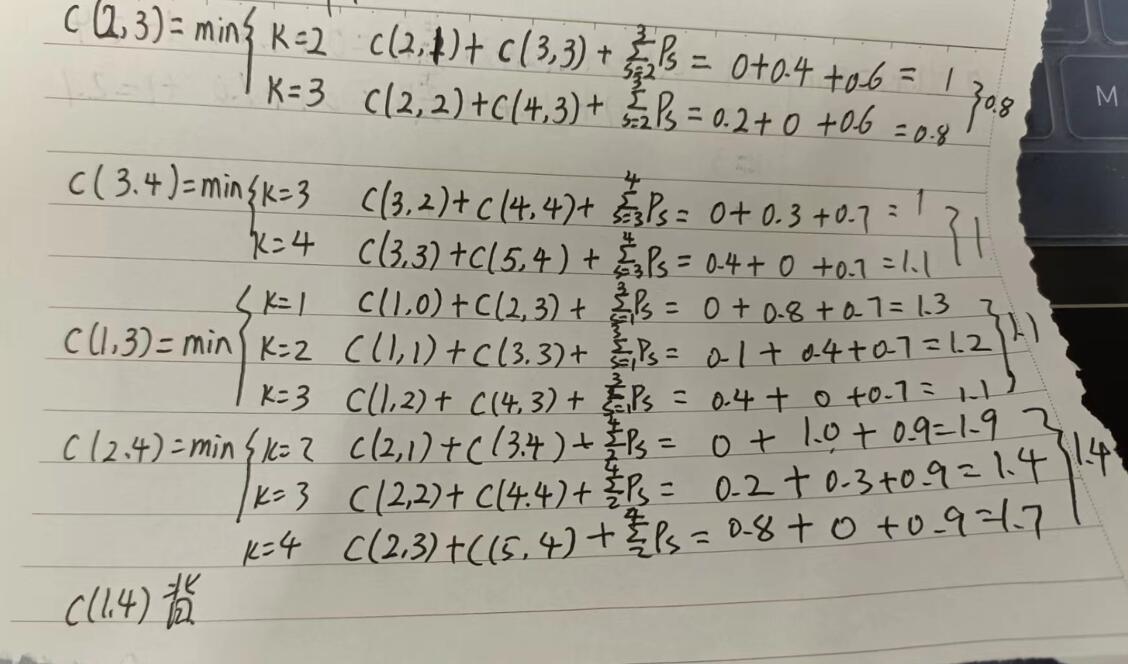 C(2,3)=min{ K=2 C(2,1)+C(3,3)+∑_{s=2}^{3}Ps = 0+0.4+0.6 = 1
K=3 C(2,2)+C(4,3)+∑_{s=2}^{3}Ps = 0.2+0+0.6 = 0.8 }0.8
C(3.4)=min{ K=3 C(3,2)+C(4,4)+∑_{s=3}^{4}Ps = 0+0.3+0.7 = 1
K=4 C(3,3)+C(5,4)+∑_{s=3}^{4}Ps = 0.4+0+0.7 = 1.1 }1
K=1 C(1,0)+C(2,3)+∑_{s=1}^{3}Ps = 0+0.8+0.7 = 1.3
C(1,3)=min{ K=2 C(1,1)+C(3.3)+∑_{s=1}^{3}Ps = 0.1+0.4+0.7 = 1.2 }1.1
K=3 C(1,2)+C(4,3)+∑_{s=1}^{3}Ps = 0.4+0+0.7 = 1.1
C(2.4)=min{ K=2 C(2,1)+C(3.4)+∑_{2}^{4}Ps = 0+1.0+0.9=1.9
K=3 C(2,2)+C(4.4)+∑_{2}^{4}Ps = 0.2+0.3+0.9=1.4 }1.4
K=4 C(2,3)+C(5,4)+∑_{2}^{4}Ps = 0.8+0+0.9=1.7
C(1.4)
M